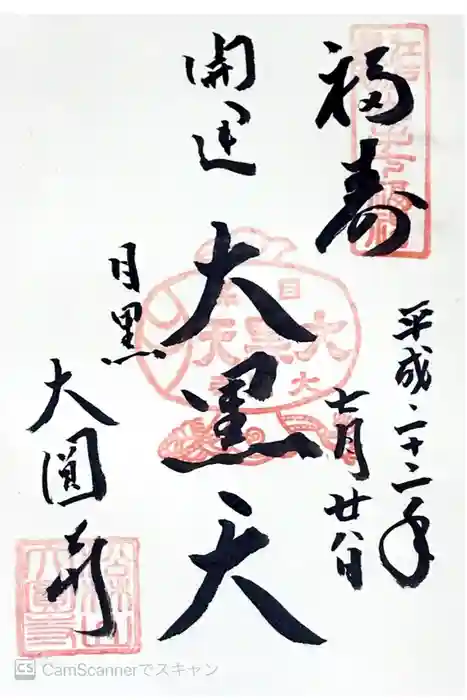 福寿
平成二十二年
七月廿八日
開運
大黒天
目黒
大圓寺
CS CamScannerでスキャン